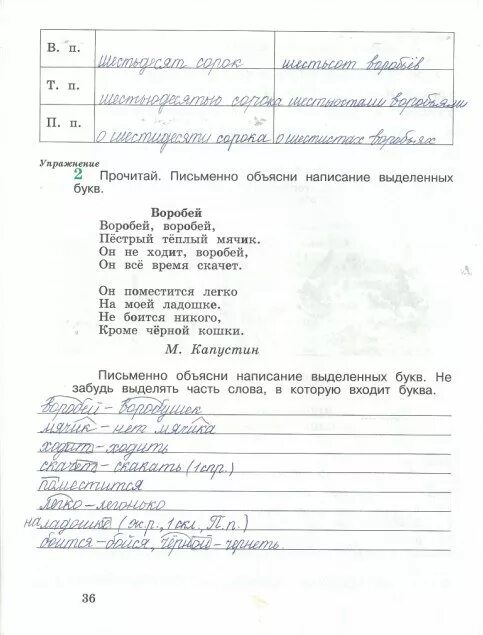 В. п. шестьдесят сорок шестьсот воробьёв
Т. п. шестьюдесятью сорока шестьюстами воробьями
П. п. о шестидесяти сорока о шестистах воробьях
Упражнение
2 Прочитай. Письменно объясни написание выделенных
букв.
Воробей
Воробей, воробей,
Пёстрый тёплый мячик.
Он не ходит, воробей,
Он всё время скачет.
Он поместится легко
На моей ладошке.
Не боится никого,
Кроме чёрной кошки.
М. Капустин
Письменно объясни написание выделенных букв. Не
забудь выделять часть слова, в которую входит буква.
воробей – воробушек
мячик – нет мячика
ходит – ходить
скачет – скакать (1 спр.)
поместится
легко – легонько
на ладошке (ж.р., 1 скл., П. п.)
боится – бойся, чёрной – чернеть.
36